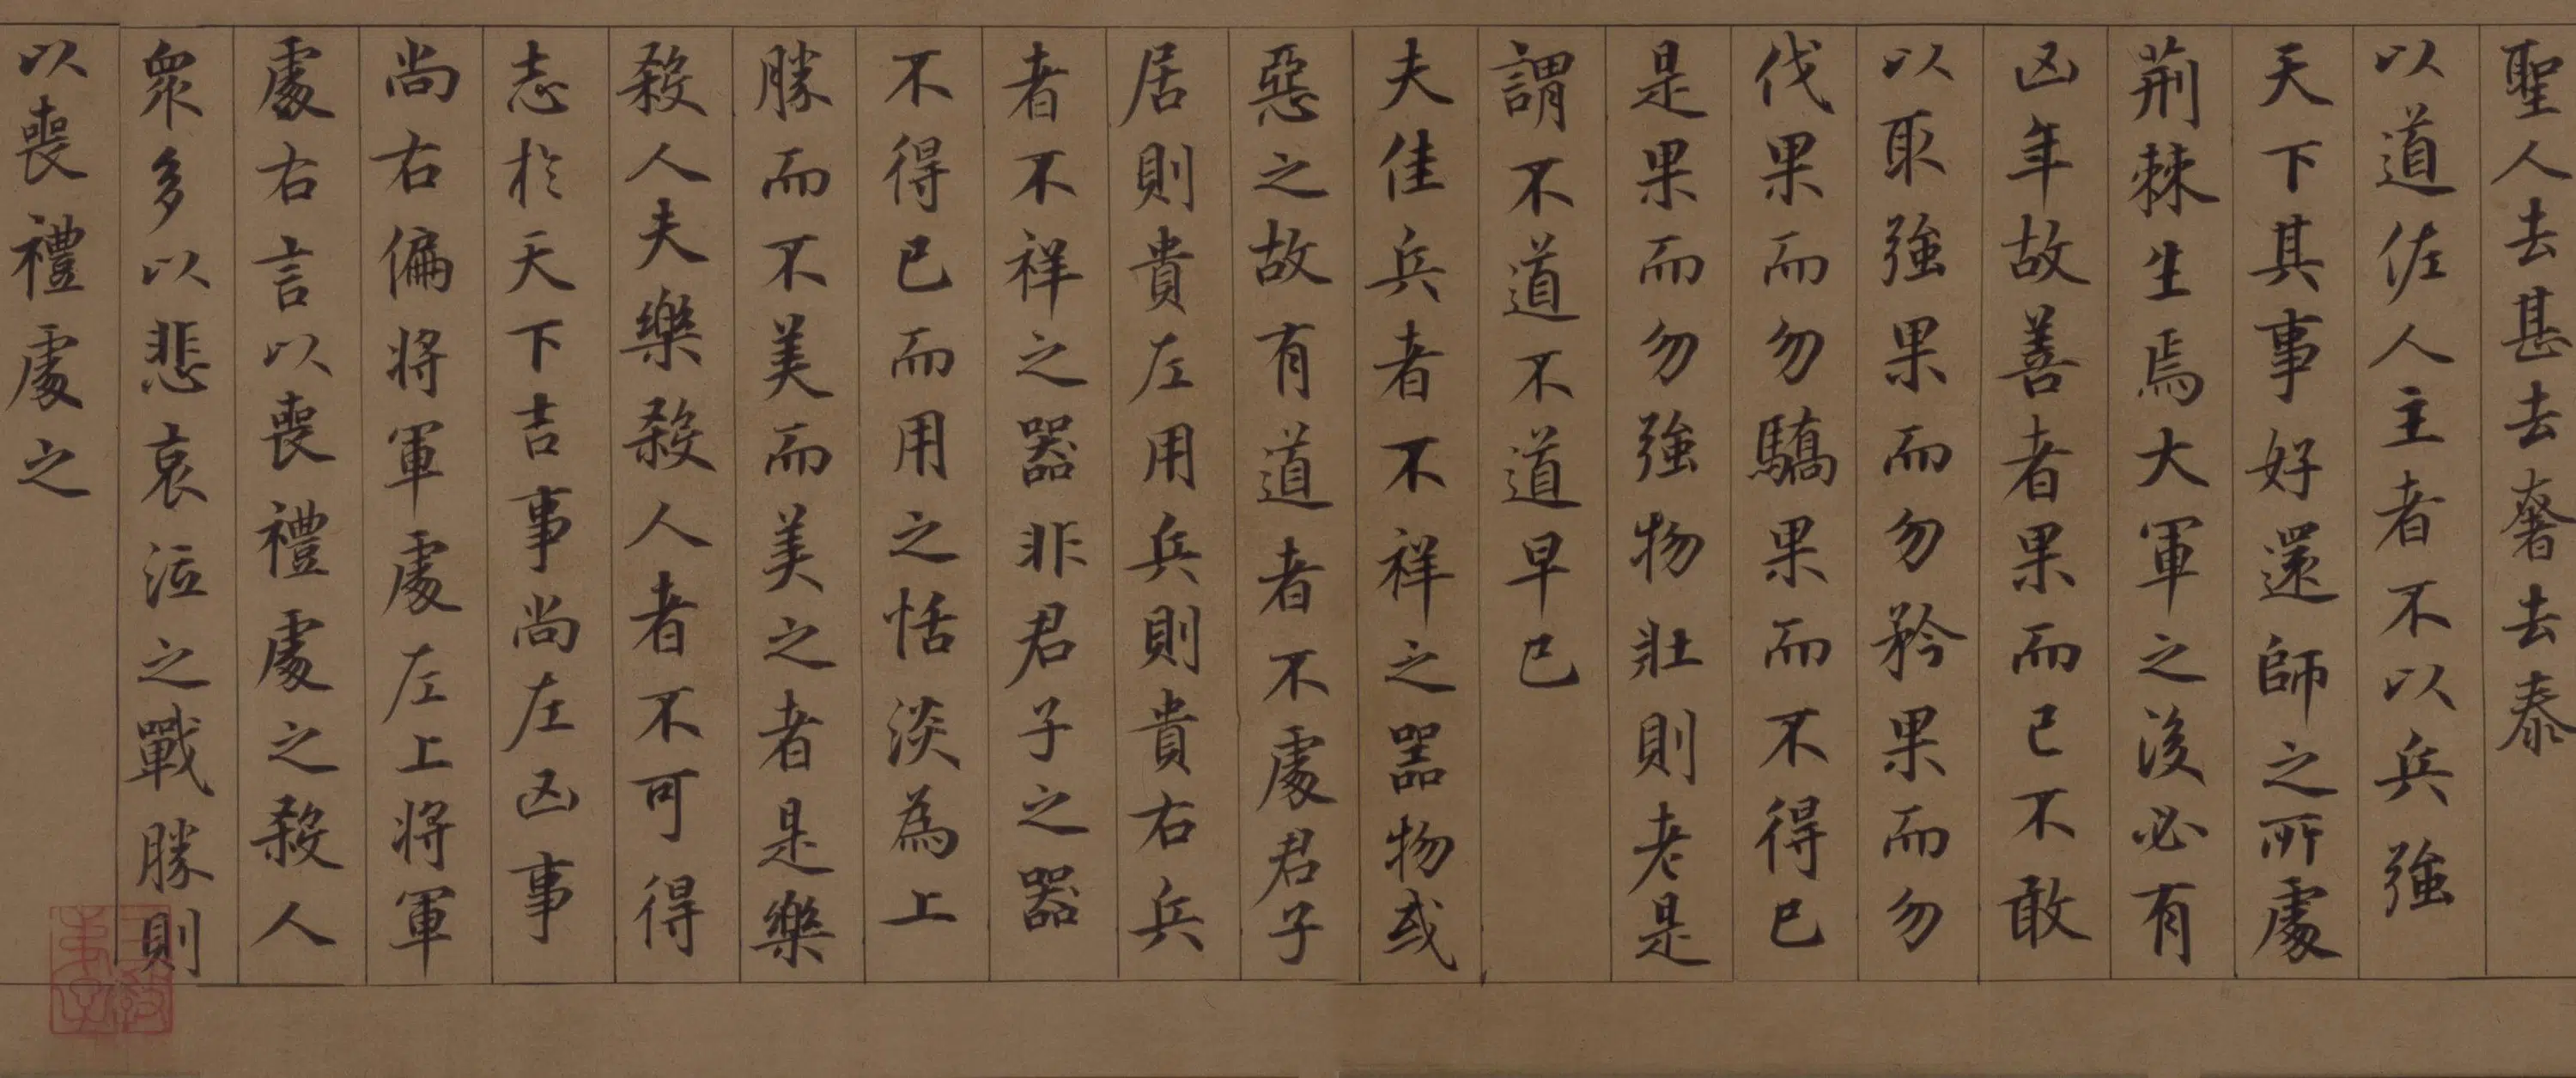 聖人去甚去奢去泰
以道佐人主者不以兵強
天下其事好還師之所處
荊棘生焉大軍之後必有
凶年故善者果而已不敢
以取強果而勿矜果而勿
伐果而勿驕果而不得已
是果而勿強物壯則老是
謂不道不道早已
夫佳兵者不祥之器物或
惡之故有道者不處君子
居則貴左用兵則貴右兵
者不祥之器非君子之器
不得已而用之恬淡為上
勝而不美而美之者是樂
殺人夫樂殺人者不可得
志於天下吉事尚左凶事
尚右偏將軍處左上將軍
處右言以喪禮處之殺人
眾多以悲哀泣之戰勝則
以喪禮處之